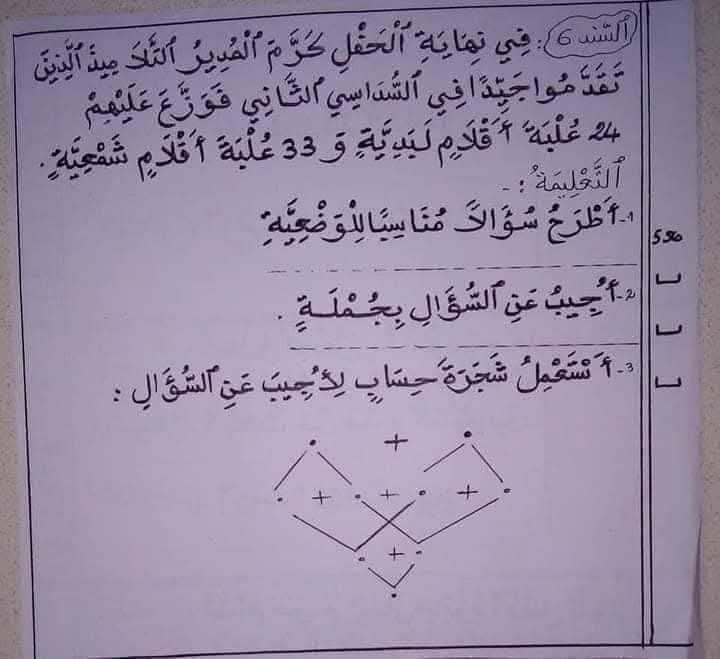 السّند 6 : فِي نِهَايَةِ ٱلْحَفْلِ كَرَّمَ ٱلْمُدِيرُ ٱلتَّلَامِيذَ ٱلَّذِينَ
تَقَدَّمُوا جَيِّدًا فِي ٱلسُّدَاسِي ٱلثَّانِي فَوَزَّعَ عَلَيْهِمْ
24 عُلْبَةَ أَقْلَامٍ لَبَدِيَّةٍ وَ 33 عُلْبَةَ أَقْلَامٍ شَمْعِيَّةٍ.
ٱلتَّعْلِيمَةُ : -
1- أَطْرَحُ سُؤَالاً مُنَاسِبًا لِلْوَضْعِيَّةِ
2- أُجِيبُ عَنِ ٱلسُّؤَالِ بِجُمْلَةٍ .
3- أَسْتَعْمِلُ شَجَرَةَ حِسَابٍ لِأُجِيبَ عَنِ ٱلسُّؤَالِ :
+
+ + +
+